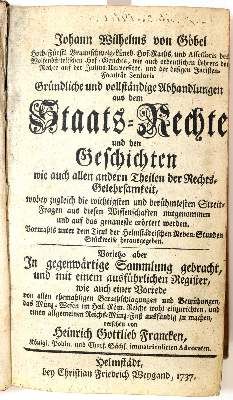 Johann Wilhelms von Göbel
Hoch-Fürstl. Braunschweig-Lüneb. Hof-Raths, und Assessoris des
Hof-Gerichts, wie auch ordentlichen Lehrers der
Rechte auf der Julius Universitæt, und der dasigen Juristen-
Facultät Senioris
Gründliche und vollständige Abhandlungen
aus dem
Staats-Rechte
und den
Geschichten
wie auch allen andern Theilen der Rechts-
Gelehrsamkeit,
wobey zugleich die wichtigsten und berühmtesten Streit-
Fragen aus diesen Wissenschaften mitgenommen
und auf das genaueste erörtert werden.
Vormahls unter dem Titul der Helmstädtischen Neben-Stunden
Stückweise herausgegeben.
Voritzo aber
In gegenwärtige Sammlung gebracht,
und mit einem ausführlichen Register,
wie auch einer Vorrede
von allen ehemahligen Berathschlagungen und Bemühungen,
das Müntz-Wesen im Heil. Röm. Reiche wohl einzurichten, und
einen allgemeinen Reichs-Müntz-Fuß ausfündig zu machen,
versehen von
Heinrich Gottlieb Francken,
Königl. Pohln. und Churf. Sächß. immatriculirten Advocaten.
Helmstädt,
bey Christian Friedrich Weygand, 1737.